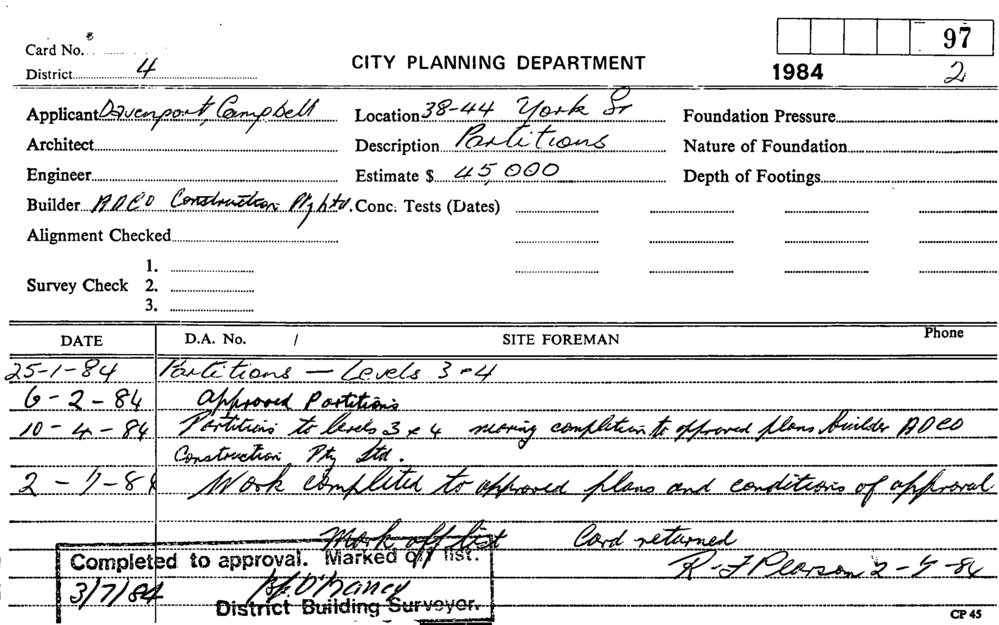 97
Card No.
District 4
CITY PLANNING DEPARTMENT
1984 2
Applicant Davenport, Campbell
Location 38-44 York St
Foundation Pressure
Architect
Description Partitions
Nature of Foundation
Engineer
Estimate $ 45,000
Depth of Footings
Builder ADCO Construction Pty Ltd.
Conc. Tests (Dates)
Alignment Checked
Survey Check
1.
2.
3.
DATE D.A. No. / SITE FOREMAN Phone
25-1-84 Partitions — Levels 3 & 4
6-2-84 Approved Partitions
10-4-84 Partitions to levels 3 & 4 nearing completion to approved plans builder ADCO
Construction Pty Ltd.
2-7-84 Work completed to approved plans and conditions of approval
Mark off list Card returned
R-F Pearson 2-7-84
Completed to approval. Marked off list.
3/7/84
District Building Surveyor.
CP 45